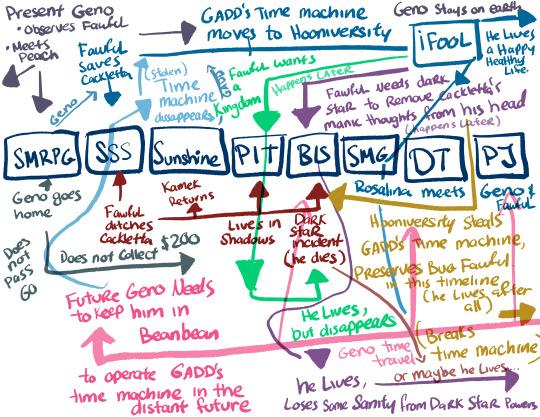 Present Geno
• Observes Fawful
• Meets
Peach
Geno
Fawful
Saves
Cackletta
GADD's Time machine
moves to Hooniversity
(Stolen)
Time
machine
dissappears
Fawful wants
a
Kingdom
Happens Later
iFOOL
Geno Stays on earth
He Lives
a Happy
Healthy
Life.
Fawful Needs dark
Star to Remove Cackletta's
manic thoughts from his head
(happens Later)
SMRPG
SSS
Sunshine
PIT
BIS
SMG
DT
PJ
Geno goes
home
Fawful
ditches
Cackletta
Kamek
Returns
Lives in
Shadows
Dark
Star
incident
(he dies)
Rosalina meets
Geno &
Fawful
Does
not
Pass
GO
Does not Collect $200
Hooniversity Steals
GADD's Time machine,
Preserves Bug Fawful
in this timeline
(he Lives after
all)
Future Geno Needs
to keep him in
Beanbean
to operate GADD's
time machine in the
distant future
He Lives,
but disappears
Geno time
travel
(Breaks
time machine)
or maybe he Lives...
he Lives,
Loses Some Sanity from Dark Star Powers